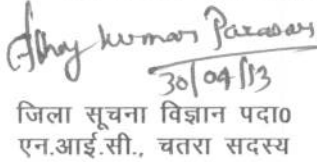 Abhay Kumar Parasar
30/04/13
जिला सूचना विज्ञान पदा०
एन.आई.सी., चतरा सदस्य